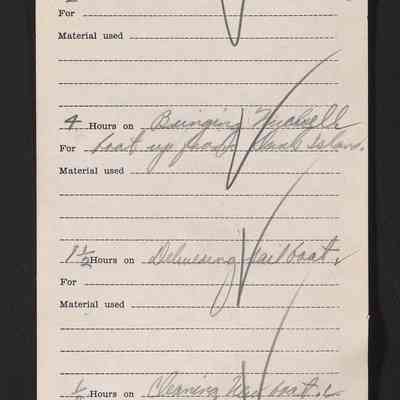 For
Material used
4 Hours on Bringing
For boat up from Duck Island.
Material used
1 1/2 Hours on Delivering sail boat
For
Material used
1/2 Hours on Cleaning New boat